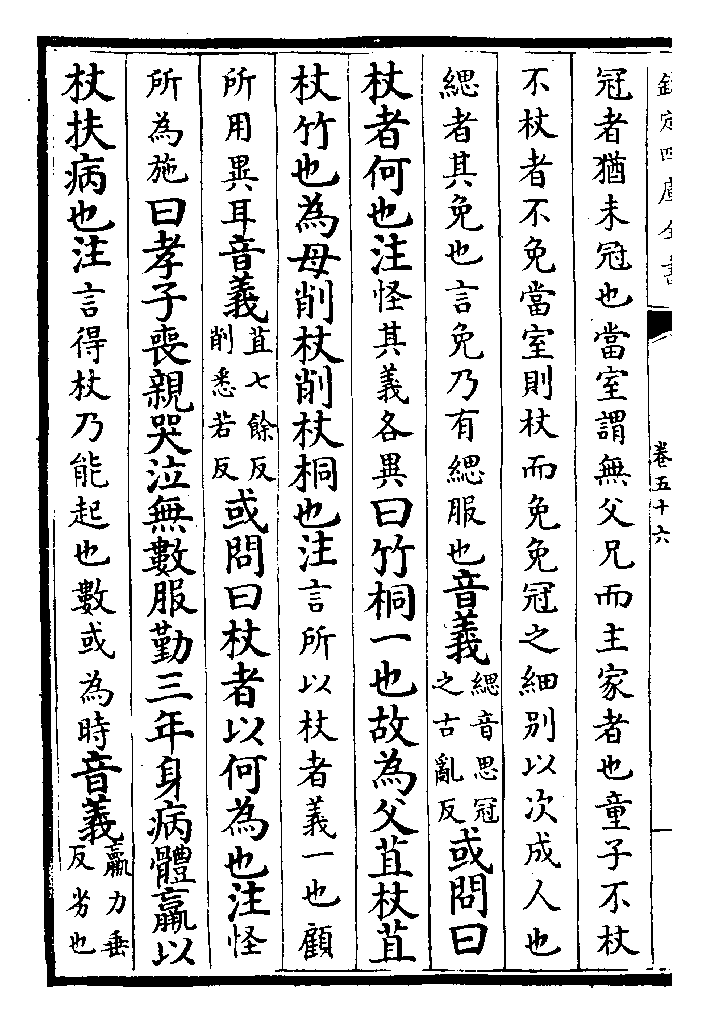 欽定四庫全書
卷五十六
冠者猶未冠也當室謂無父兄而主家者也童子不杖
不杖者不免當室則杖而免免冠之細别以次成人也
緦者其免也言免乃有緦服也音義緦音思冠之古亂反或問曰
杖者何也注怪其義各異曰竹桐一也故為父苴杖苴
杖竹也為母削杖削杖桐也注言所以杖者義一也顧
所用異耳音義苴七餘反削悉若反或問曰杖者以何為也注怪
所為施曰孝子喪親哭泣無數服勤三年身病體羸以
杖扶病也注言得杖乃能起也數或為時音義羸力垂反劣也